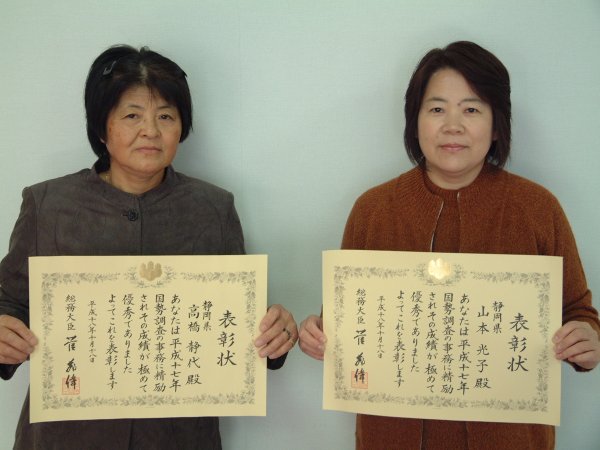 表彰状
静岡県
高橋静代殿
あなたは平成十七年
国勢調査の事務に精励
されその成績が極めて
優秀でありました
よってこれを表彰します
平成十八年十月十八日
総務大臣 菅義偉
表彰状
静岡県
山本光子殿
あなたは平成十七年
国勢調査の事務に精励
されその成績が極めて
優秀でありました
よってこれを表彰します
平成十八年十月十八日
総務大臣 菅義偉